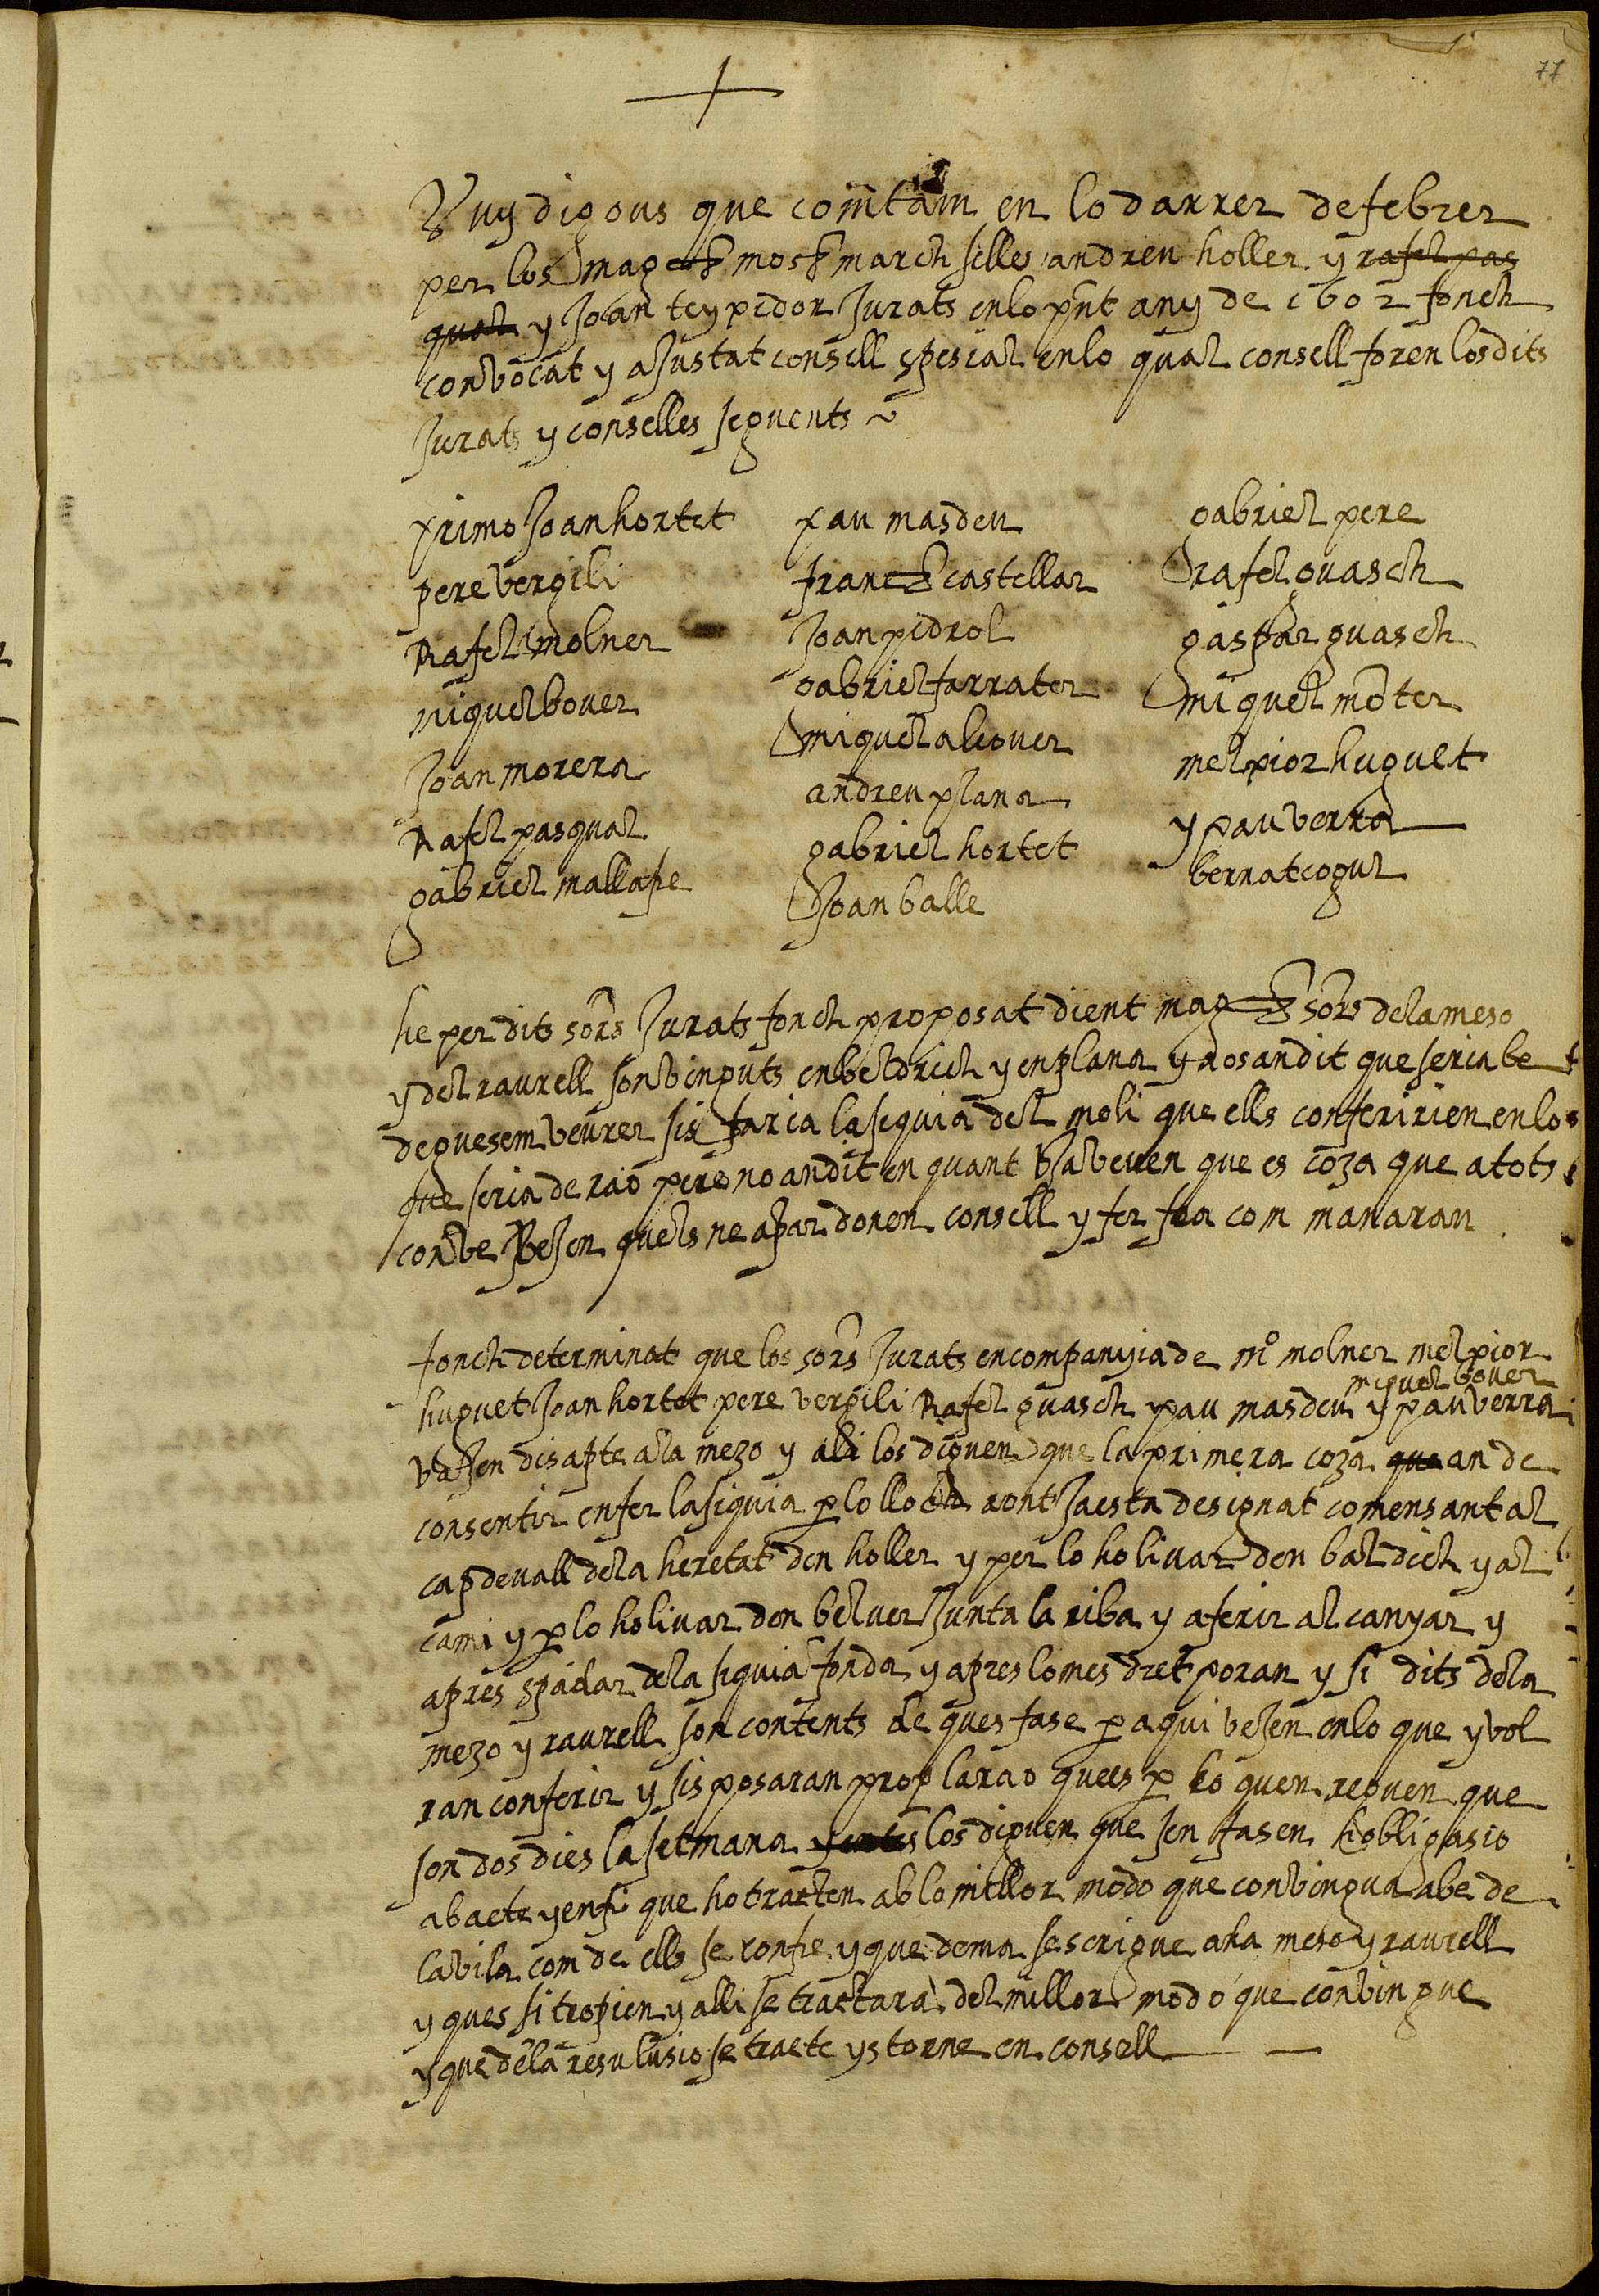 77
Vuy digous que comtam en lo darrer de febrer
per los mag.chs mos.s march silles andreu holler y rafel pas
qual y Joan teypidor Jurats en lo pnt any de 1602 fonch
convocat y aJustat consell spesial en lo qual consell foren los dits
Jurats y conselles seguents
primo Joan hortet
pere vergili
Rafel molner
miquel bover
Joan morera
Rafel pasqual
gabriel mallafre
pau masdeu
franc.s castellar
Joan pidrol
gabriel farrater
miquel alcover
andreu plana
gabriel hortet
Joan balle
gabriel pere
rafel guasch
gaspar guasch
miquel moter
melpior huguet
y pau verra
bernat cogul
he per dits sors Jurats fonch proposat dient mag.chs sors de la meso
y del raurell son vinguts en beldrich y en plana y nos an dit que seria be
deguesem veurer sis faria la sequia del moli que ells conferirien en lo
que seria de rao pero no an dit en quant vsaveuen que es coza que a tots
conve veJen quels ne apar donen consell y fer sea com manaran
fonch determinat que los sors Jurats en companyia de mº molner melpior
miquel bover
huguet Joan hortet pere vergili Rafel guasch pau masdeu y pau verra
vaJen disapte a la mezo y ali los diguen que la primera coza que an de
consentir en fer la siquia p lo lloch aont Ja esta designat comensant al
cap devall de la heretat den holler y per lo holivar den baldich y al
cami y p lo holivar den belver Junta la riba y a ferir al canyar y
apres spadar de la siquia fonda y apres lo mes dret poran y si dits de la
mezo y raurell son contents de ques fase p aqui veJen en lo que y vol
ran conferir y sis posaran prop la rao quees p ho quen reguen que
son dos dies la setmana y entes los diguen que sen fasen hobligasio
ab acte y en fi que ho tracten ab lo millor modo que convingua a be de
la vila com de ells se confie y que dema se scrigue a ha meso y raurell
y ques si tropien y alli se tractara del millor modo que convingue
y que de la resulusio se tracte ys torne en consell